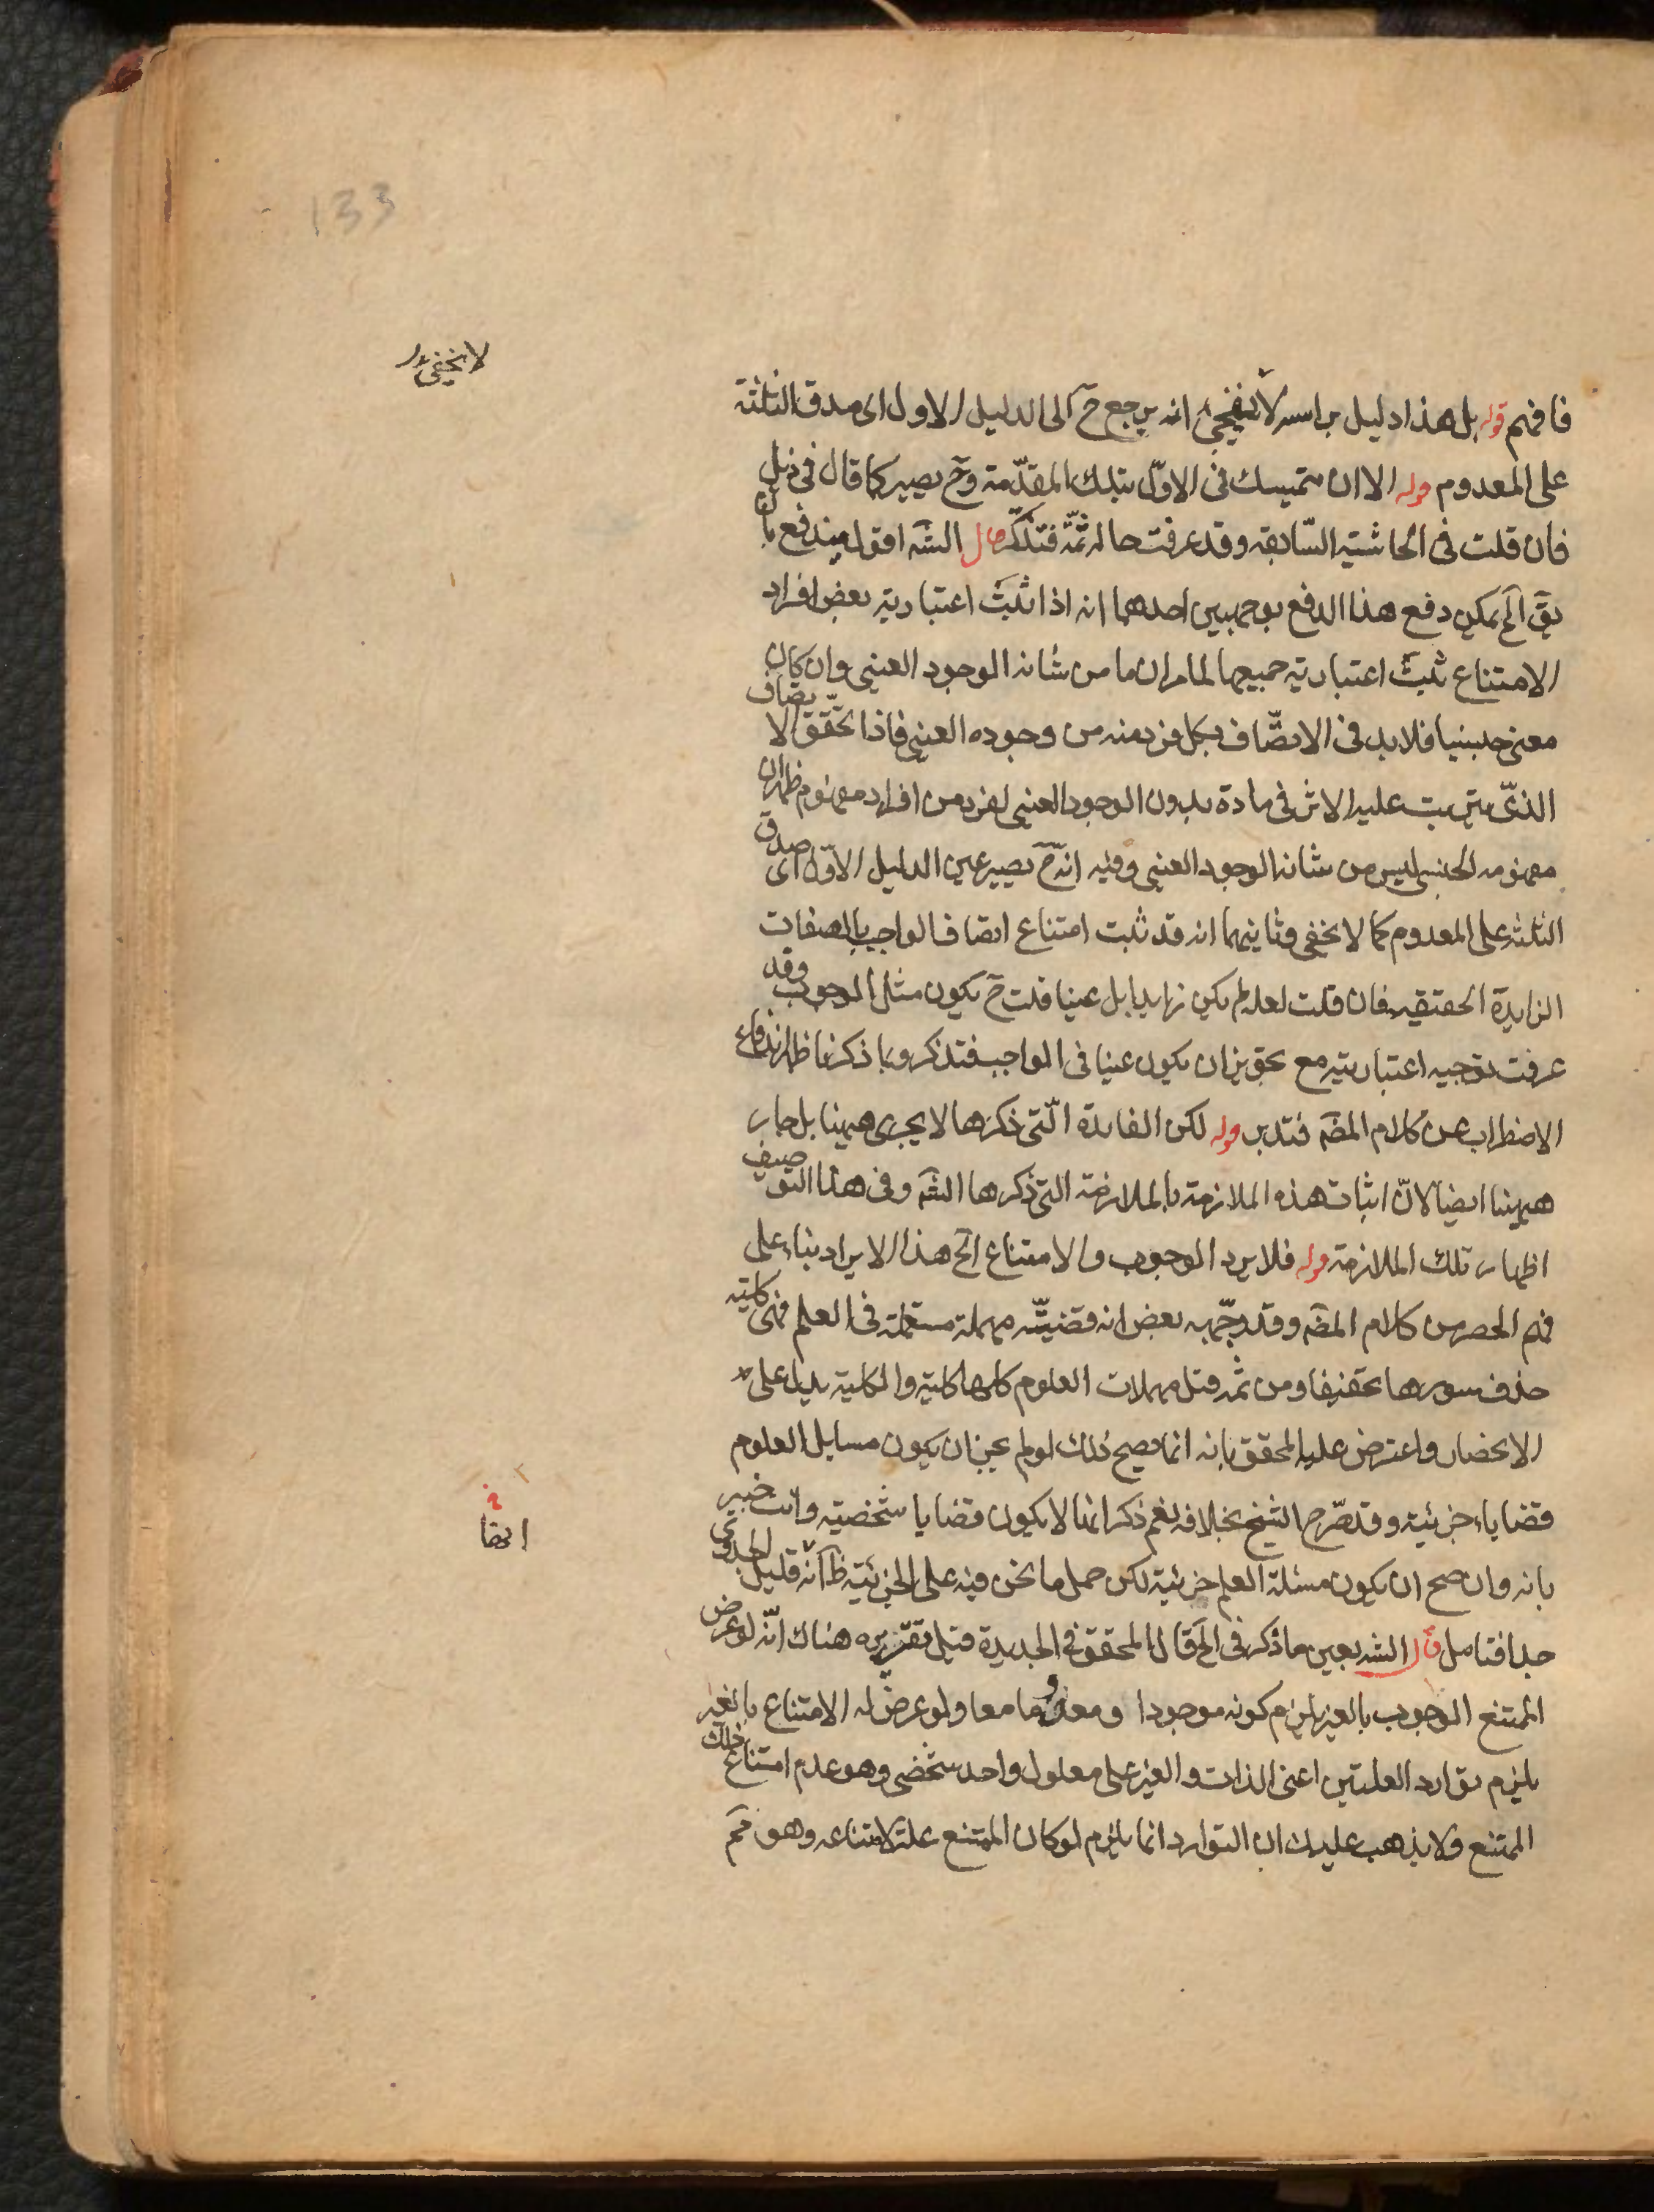 133
لا يخفى بدل
فافهم قوله بل هذا دليل براسه لا يخفى انه يرجع ح الى الدليل الاول اى صدق الثلثة
على المعدوم قوله الا ان يتمسك فى الاوّل بتلك المقدّمة وح يصير كما قال فى ذيل
فان قلت فى الحاشية السّابقه وقد عرفت حاله ثمّة فتذكّر قال الشه اقول يندفع بان
يقَ الخ يمكن دفع هذا الدفع بوجهين احدهما انه اذا ثبت اعتبارية بعض افراد
الامتناع ثبت اعتبارية جميعها لما مر ان ما من شانه الوجود العينى وان كان
معنى جنسيا فلا بد فى الاتصّاف بكل فرد منه من وجوده العينى فاذا تحقّق الاتّصاف
الذىّ يترتب عليه الاثر فى مادة بدون الوجود العينى لفرد من افراد مفهوم ظهر ان
مفهومه الجنسى ليس من شانه الوجود العينى وفيه انّه ح يصير عين الدليل الاوّل اى صدق
الثلثة على المعدوم كما لا يخفى وثانيهما انه قد ثبت امتناع اتصاف الواجب بالصفات
الزايدة الحقيقيه فان قلت لعله لم يكن زايدا بل عينا قلت ح يكون مثل الوجوب وقد
عرفت توجيه اعتباريته مع تجويز ان يكون عينا فى الواجب فتذكر وبما ذكرنا ظهر اندفاع
الاضطراب عن كلام المصَه فتدبر قوله لكن الفايدة الّتى ذكرها لا يجرى ههنا بل جار
ههنا ايضا لانّ اثبات هذه الملازمة بالملازمة التى ذكرها الشَه وفى هذا التوصيف
اظهار تلك الملازمة قوله فلا يرد الوجوب والامتناع الخ هذا الايراد بناء على
فهم الحصر من كلام المصَه وقد وجّهه بعض انه قضيّة مهملة مستعملة فى العلم فهى كلية
حذف سورها تخفيفا ومن ثمه قيل مهملات العلوم كلها كلية والكلية يدل على
الانحصار واعترض عليه المحقق بانه انما يصح ذلك لو لم يجز ان يكون مسايل العلوم
قضايا جزئية وقد صّرح الشيخ بخلافه نعم ذكر انها لا يكون قضايا شخصية وانت خبير
بانه وان صح ان يكون مسئلة العلم جزئية لكن حمل ما نحن فيه على الجزئية ظَ انّه قليل الجدوى
جدا فتامل قال الشه بعين ما ذكر فى الخ قال المحقق فى الجديدة قيل تقريره هناك انّه لو عرض
الممتنع الوجوب بالغير يلزم كونه موجودا ومعدوما معا ولو عرض له الامتناع بالغير
يلزم توارد العلتين اعنى الذات والغير على معلول واحد شخصى وهو عدم امتناع ذلك
الممتنع ولا يذهب عليك ان التوارد انما يلزم لو كان الممتنع علة لامتناعه وهو مَم
ايضا